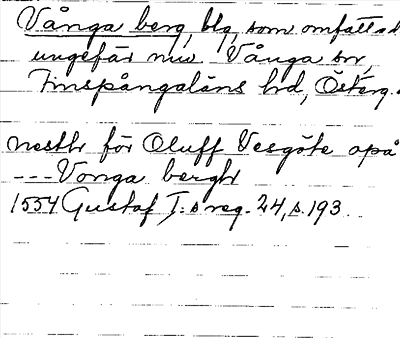 Vånga berg, blg, som omfattade
ungefär nuv. Vånga sn,
Finspångaläns hd, Österg.
nestħ för Oluff Vesgöte opå
--- Vonga bergħ
1554 Gustaf I:s reg. 24, s. 193